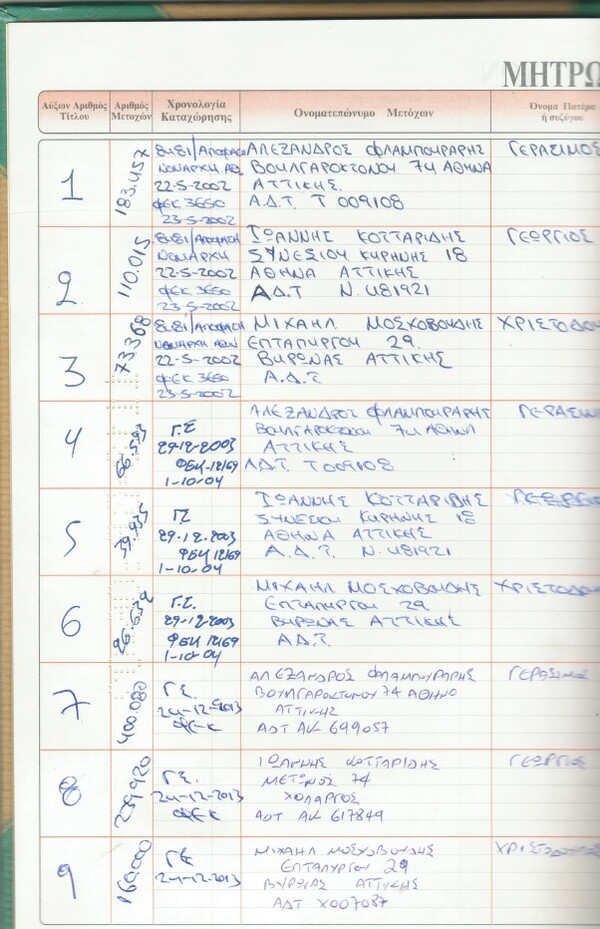 ΜΗΤΡΩ
Αύξων Αριθμός Τίτλου
Αριθμός Μετοχών
Χρονολογία Καταχώρησης
Ονοματεπώνυμο Μετόχων
Όνομα Πατέρα ή συζύγου
1
183.457
8481/ΑΠΟΦΑΣΗ
ΝΟΜΑΡΧΗ ΑΘ
22-5-2002
ΦΕΚ 3650
23-5-2002
ΑΛΕΞΑΝΔΡΟΣ ΦΛΑΜΠΟΥΡΑΡΗΣ
ΒΟΥΛΓΑΡΟΚΤΟΝΟΥ 74 ΑΘΗΝΑ
ΑΤΤΙΚΗΣ.
Α.Δ.Τ. Τ 009108
ΓΕΡΑΣΙΜΟΣ
2
110.015
8481/ΑΠΟΦΑΣΗ
ΝΟΜΑΡΧΗ
22-5-2002
ΦΕΚ 3650
23-5-2002
ΙΩΑΝΝΗΣ ΚΟΤΤΑΡΙΔΗΣ
ΣΥΝΕΣΙΟΥ ΚΥΡΗΝΗΣ 18
ΑΘΗΝΑ ΑΤΤΙΚΗΣ
Α.Δ.Τ Ν.481921
ΓΕΩΡΓΙΟΣ
3
73.368
8481/ΑΠΟΦΑΣΗ
ΝΟΜΑΡΧΗ ΑΘΗΝ
22-5-2002
ΦΕΚ 3650
23-5-2002
ΜΙΧΑΗΛ ΜΟΣΧΟΒΟΥΔΗΣ
ΕΠΤΑΠΥΡΓΟΥ 29.
ΒΥΡΩΝΑΣ ΑΤΤΙΚΗΣ
Α.Δ.Τ.
ΧΡΙΣΤΟΔΟΥ
4
66.593
Γ.Σ
29-12-2003
ΦΕΚ 12169
1-10-04
ΑΛΕΞΑΝΔΡΟΣ ΦΛΑΜΠΟΥΡΑΡΗΣ
ΒΟΥΛΓΑΡΟΚΤΟΝΟΥ 74 ΑΘΗΝΑ
ΑΤΤΙΚΗΣ
Α.Δ.Τ. Τ009108
ΓΕΡΑΣΙΜ
5
39.935
ΓΣ
29-12-2003
ΦΕΚ 12169
1-10-04
ΙΩΑΝΝΗΣ ΚΟΤΤΑΡΙΔΗΣ
ΣΥΝΕΣΙΟΥ ΚΥΡΗΝΗΣ 18
ΑΘΗΝΑ ΑΤΤΙΚΗΣ
Α.Δ.Τ. Ν.481921
ΓΕΩΡΓΙΟ
6
26.632
Γ.Σ.
29-12-2003
ΦΕΚ 12169
1-10-04
ΜΙΧΑΗΛ ΜΟΣΧΟΒΟΥΔΗΣ
ΕΠΤΑΠΥΡΓΟΥ 29
ΒΥΡΩΝΑΣ ΑΤΤΙΚΗΣ
Α.Δ.Τ.
ΧΡΙΣΤΟΔΟΥ
7
400.080
Γ.Σ.
24-12-2013
ΦΕΚ
ΑΛΕΞΑΝΔΡΟΣ ΦΛΑΜΠΟΥΡΑΡΗΣ
ΒΟΥΛΓΑΡΟΚΤΟΝΟΥ 74 ΑΘΗΝΑ
ΑΤΤΙΚΗΣ
ΑΔΤ ΑΚ 699057
ΓΕΡΑΣΙΜΟΣ
8
239.920
Γ.Σ.
24-12-2013
ΦΕΚ
ΙΩΑΝΝΗΣ ΚΟΤΤΑΡΙΔΗΣ
ΜΕΤΩΝΟΣ 74
ΧΟΛΑΡΓΟΣ
ΑΔΤ ΑΚ 617849
ΓΕΩΡΓΙΟΣ
9
160.000
Γ.Σ
24-12-2013
ΜΙΧΑΗΛ ΜΟΣΧΟΒΟΥΔΗΣ
ΕΠΤΑΠΥΡΓΟΥ 29
ΒΥΡΩΝΑΣ ΑΤΤΙΚΗΣ
ΑΔΤ Χ007087